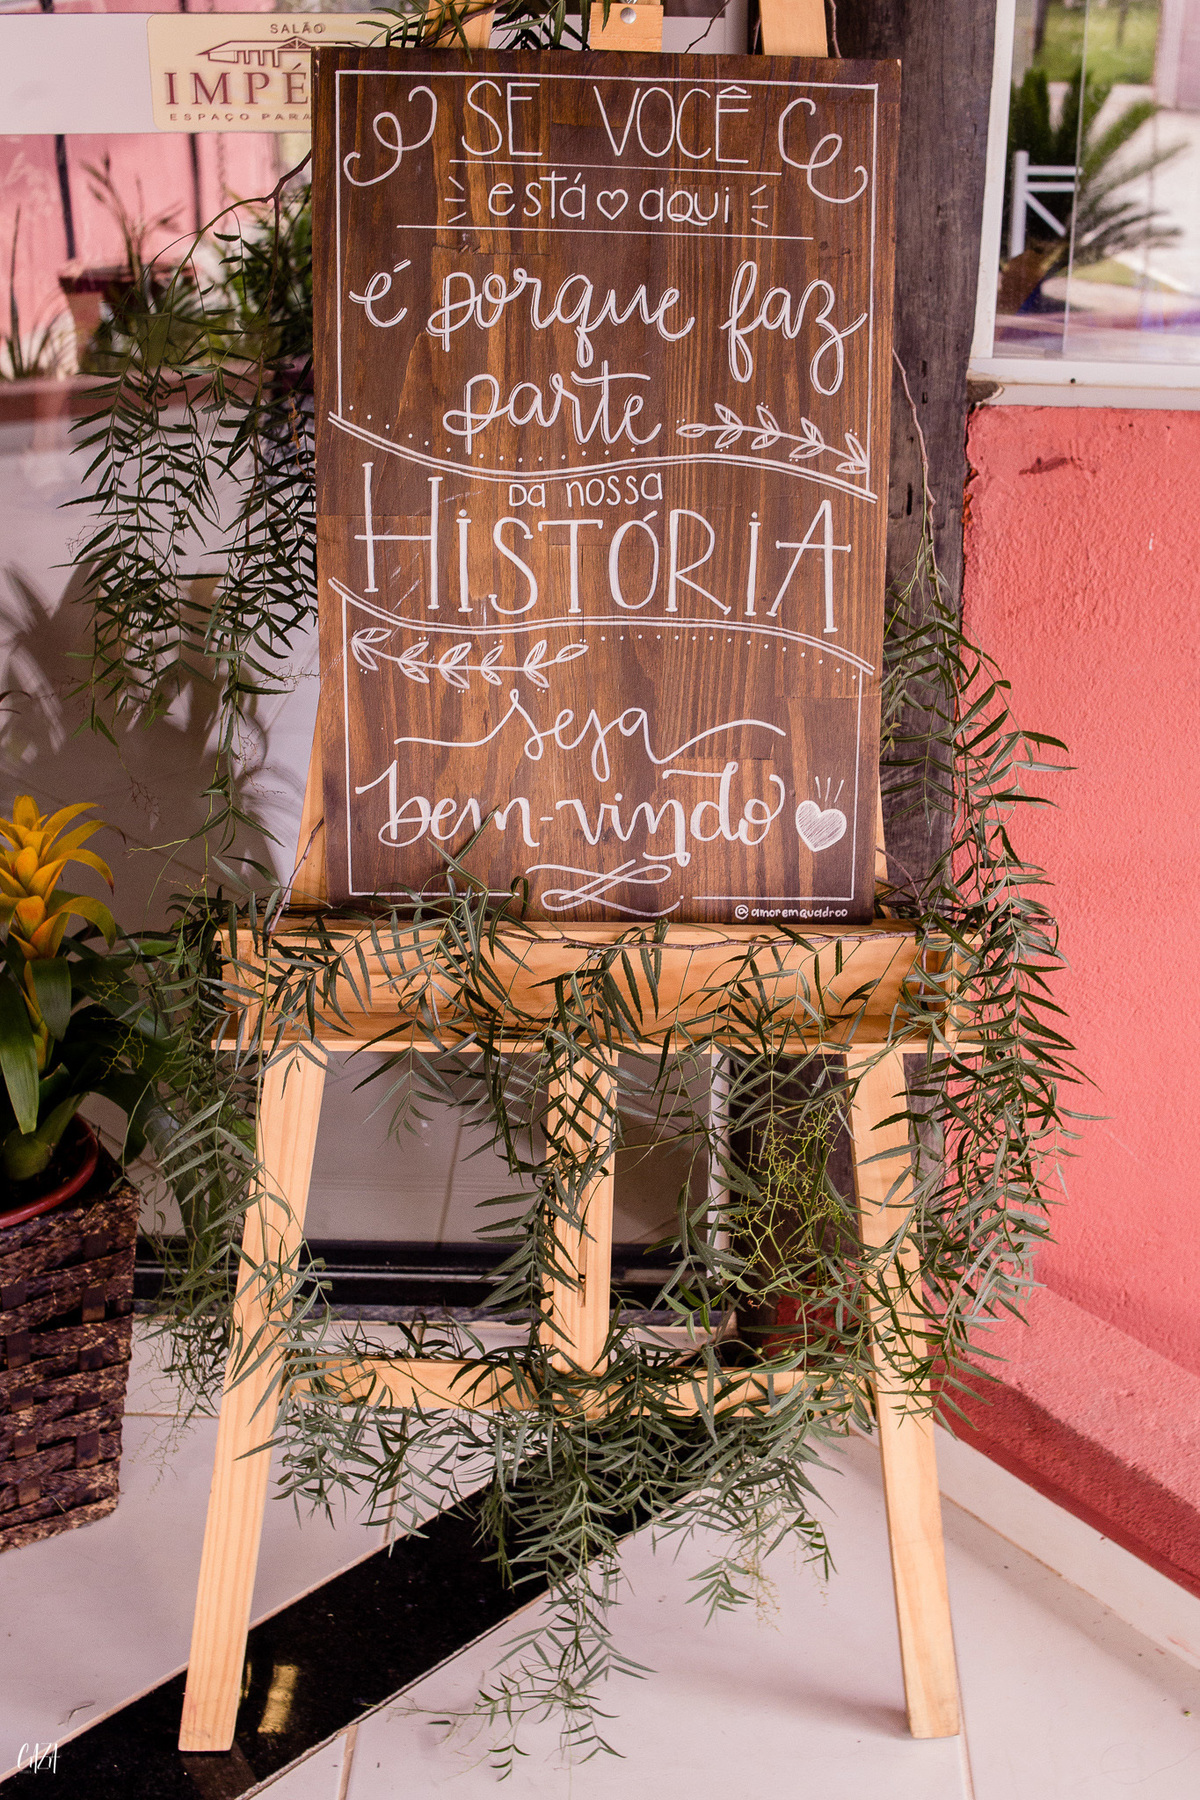 SALÃO
IMPÉ
ESPAÇO PARA
SE VOCÊ
está aqui
é porque faz
parte
DA NOSSA
HISTÓRIA
seja
bem-vindo
@amoremquadroo
CAZA